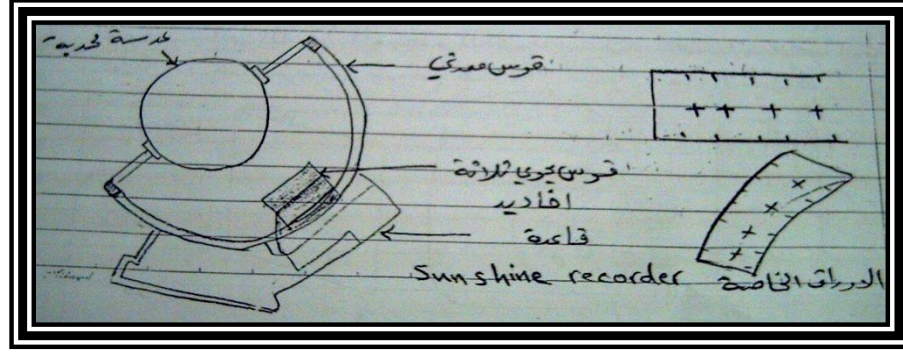 عدسة محدبة
قوس معدني
قوس يحوي ثلاثة
اخاديد
قاعدة
Sunshine recorder
الاوراق الخاصة